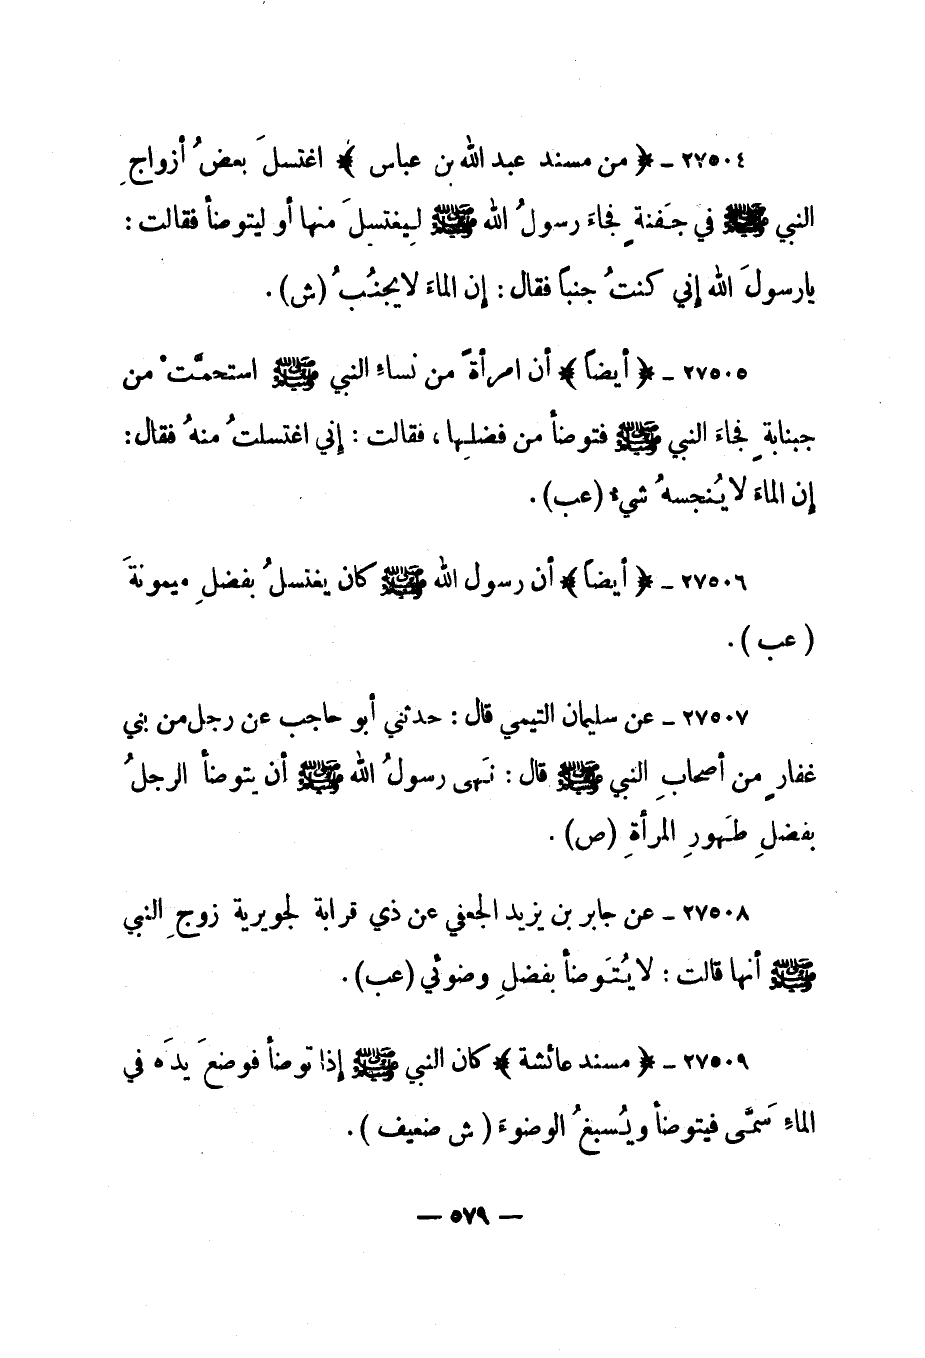 ٢٧٥٠٤ ـ ﴿ من مسند عبد الله بن عباس ﴾ اغتسلَ بعضُ أزواجِ
النبي ﷺ في جَفنةٍ فجاءَ رسولُ الله ﷺ لِيغتسلَ منها أو ليتوضأ فقالت :
يارسولَ الله إني كنتُ جنباً فقال : إن الماءَ لايجنُبُ (ش).
٢٧٥٠٥ ـ ﴿ أيضاً ﴾ أن امرأةً من نساءِ النبي ﷺ استحمَّتْ من
جبنابةٍ فجاءَ النبي ﷺ فتوضأ من فضلِها ، فقالت : إني اغتسلتُ منهُ فقال:
إن الماءَ لايُنجسهُ شيء (عب).
٢٧٥٠٦ ـ ﴿ أيضاً ﴾ أن رسول الله ﷺ كان يغتسلُ بفضلِ ميمونةَ
( عب ).
٢٧٥٠٧ ـ عن سليمان التيمي قال : حدثني أبو حاجب عن رجل من بني
غفارٍ من أصحابِ النبي ﷺ قال : نَهى رسولُ الله ﷺ أن يتوضأ الرجلُ
بفضلِ طَهورِ المرأةِ (ص) .
٢٧٥٠٨ ـ عن جابر بن يزيد الجعفي عن ذي قرابة لجويرية زوجِ النبي
ﷺ أنها قالت : لا يُتَوضأ بفضلِ وضوئي (عب).
٢٧٥٠٩ ـ ﴿ مسند عائشة ﴾ كان النبي ﷺ إذا توضأ فوضعَ يدَه في
الماءِ سَمَّى فيتوضأ ويُسبغُ الوضوءَ ( ش ضعيف ).
— ٥٧٩ —